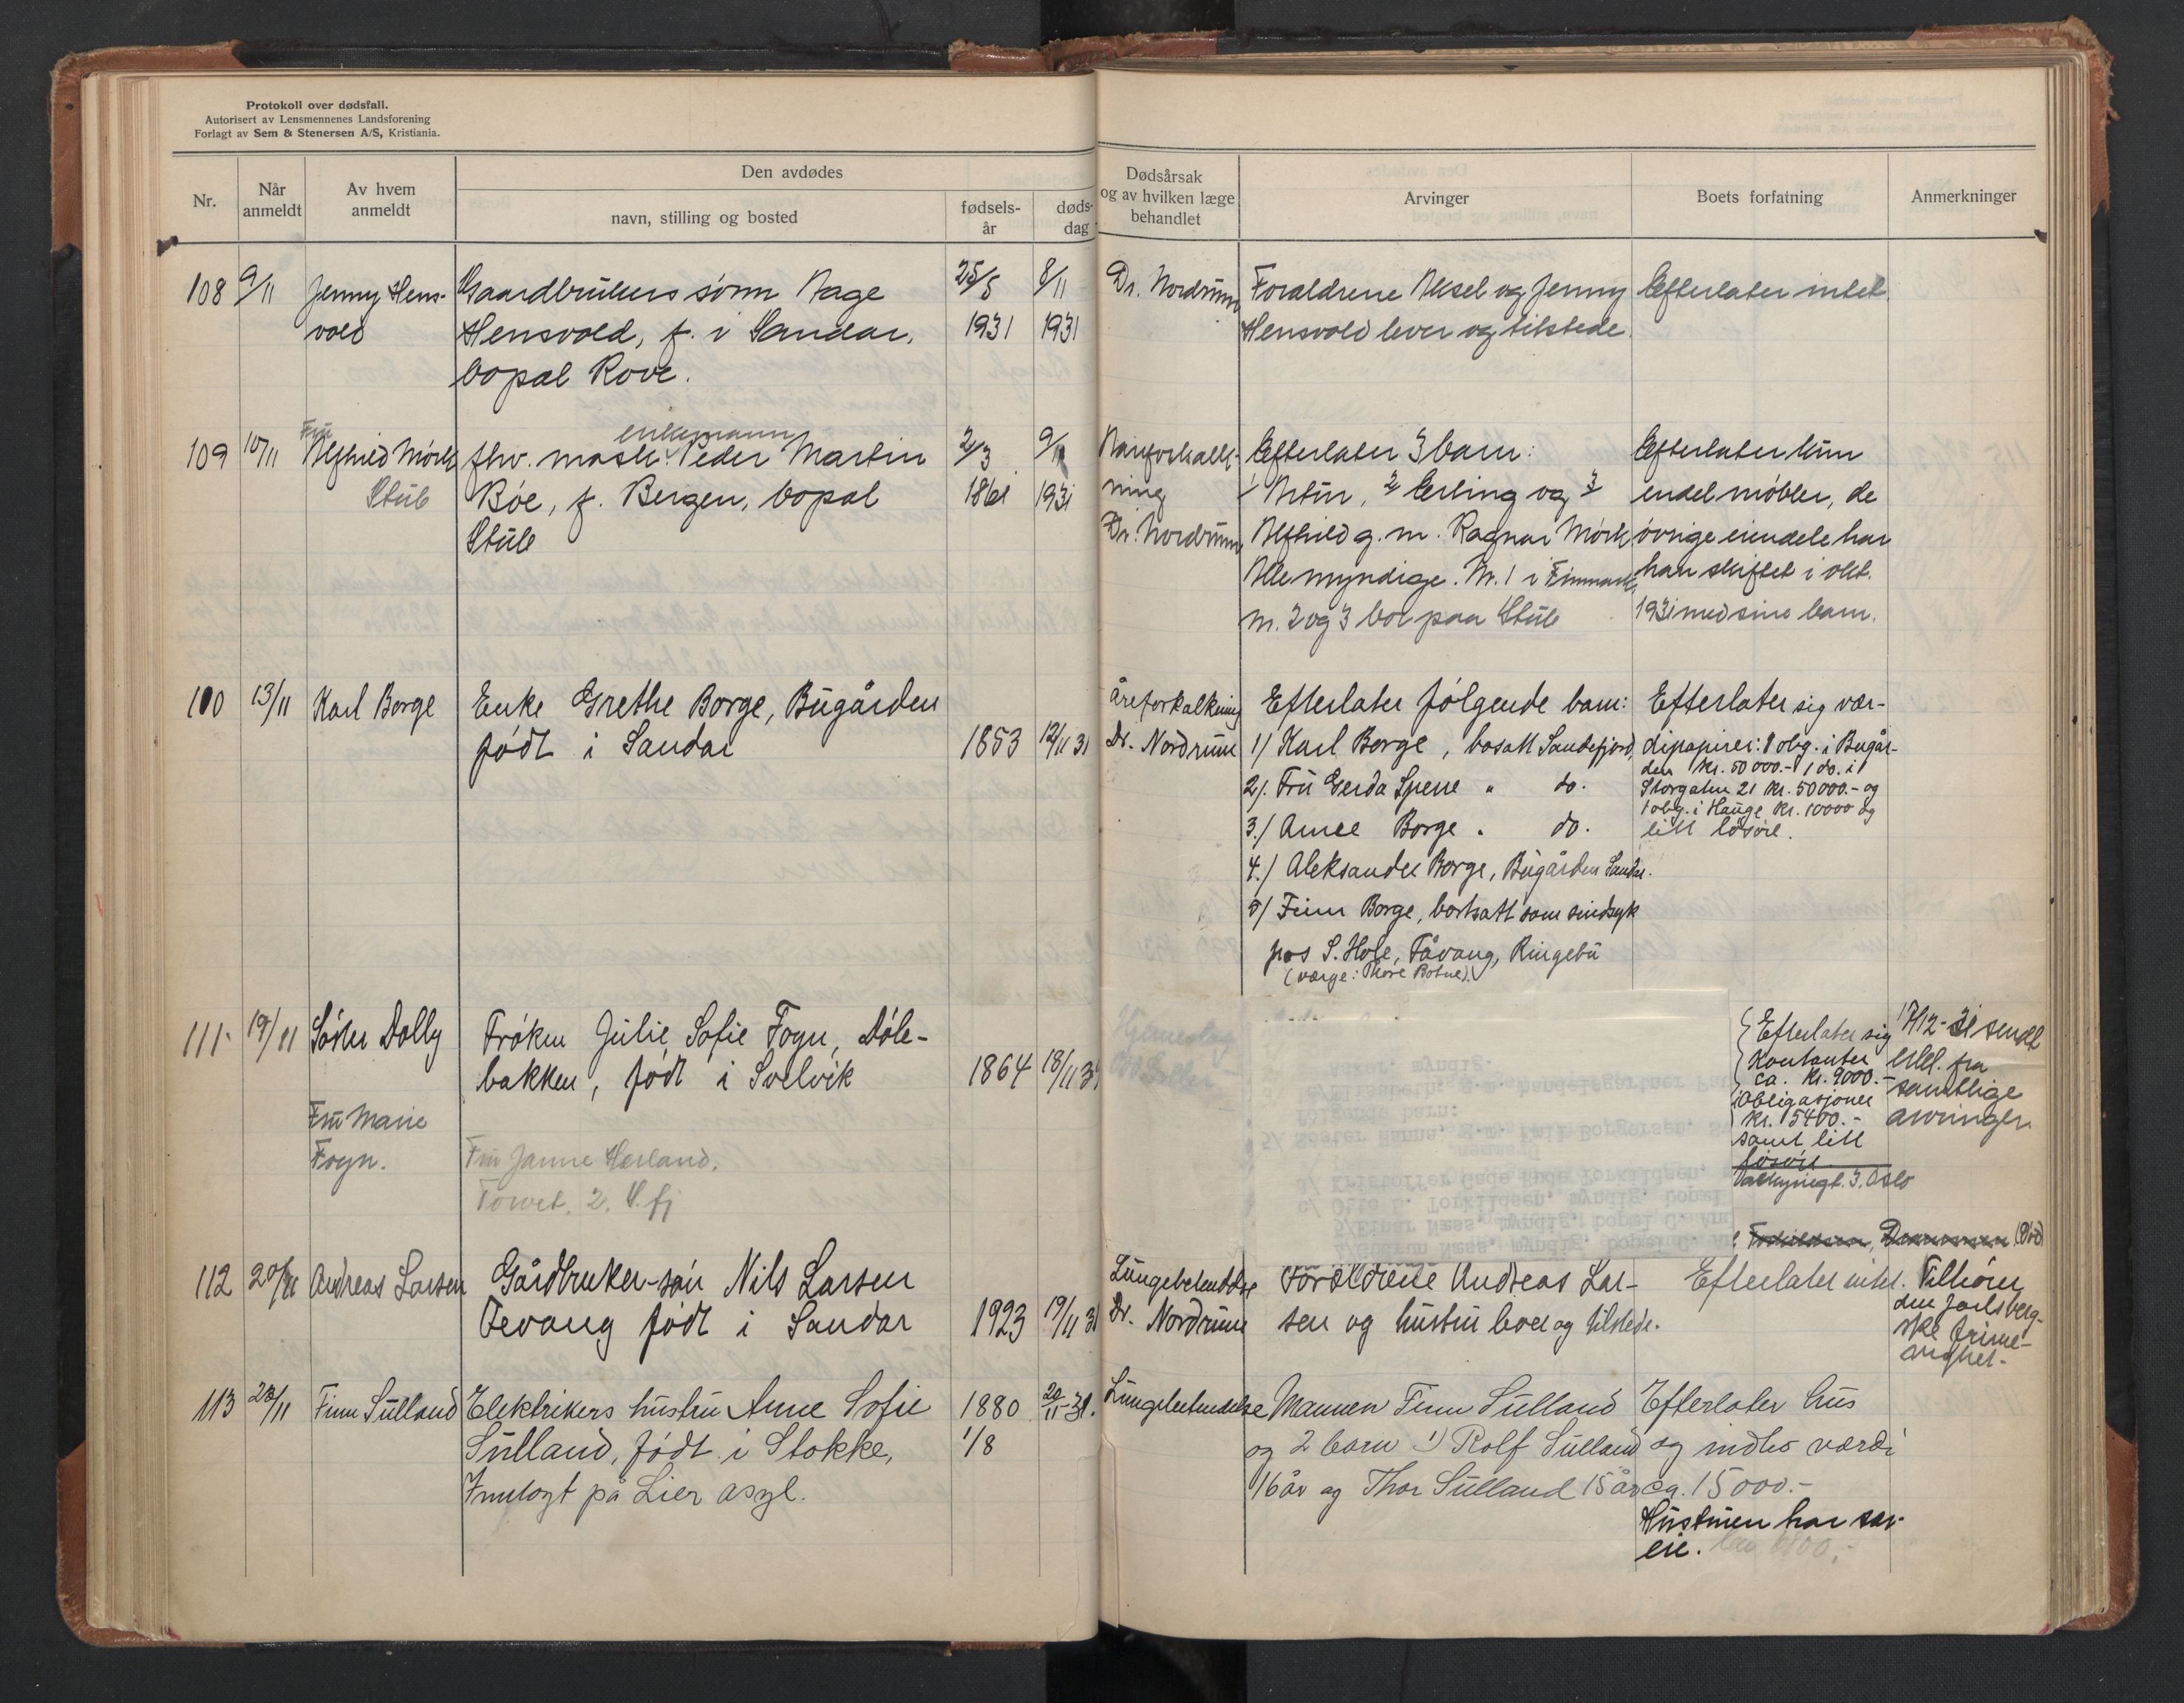 Protokoll over dødsfall.
Autorisert av Lensmennenes Landsforening
Forlagt av Sem & Stenersen A/S, Kristiania.
Nr.
Når anmeldt
Av hvem anmeldt
Den avdødes
navn, stilling og bosted
fødsels-år
døds-dag
Dødsårsak og av hvilken læge behandlet
Arvinger
Boets forfatning
Anmerkninger
108 9/11 Jenny Hens- Gaardbrukers sønn Aage 25/5 8/11 Dr. Nordrum Foraldrene Aksel og Jenny Efterlater intet.
vold Hensvold, f. i Sandar, 1931 1931 Hensvold lever og tilstede.
bopæl Rove.
Fru enkemann
109 10/11 Alfhild Mørk fhv. mask. Peder Martin 2/3 9/11 Aareforkalk- Efterlater 3 barn: Efterlater kun
Stub Bøe, f. Bergen, bopæl 1861 1931 ning 1 Artur, 2 Erling og 3 endel møbler, de
Stub Dr. Nordrum Alfhild g. m. Ragnar Mørk, øvrige eiendele har
Alle myndige. Nr. 1 i Finmark, han skiftet i okt.
nr. 2 og 3 bor paa Stub 1931 med sine barn.
110 13/11 Karl Borge Enke Grethe Borge, Bugården åreforkalkning Efterlater følgende barn: Efterlater sig vær-
født i Sandar 1853 12/11 31 Dr. Nordrum 1/ Karl Borge, bosatt Sandefjord, dipapirer: 1 obg. i Bugår-
den kr. 50 000.- 1 do. i
2/. Fru Gerda Spene " do. Storgaten 21 kr. 50000.- og
1 obg. i Hauge kr. 10000 og
3./ Arnee Borge " do. litt løsøre.
4./ Aleksander Borge, Bugården Sandar.
5/ Finn Borge, bortsatt som sindsyk
hos S. Hole, Fåvang, Ringebu
(værge: Thore Botne).
111 19/11 Søster Dolly Frøken Julie Sofie Fogn, Døle- Hjerneslag Efterlater sig 17/12-31 sendt
bakken, født i Svelvik 1864 18/11 31 Kontanter erkl. fra
ca. kr. 9000.- samtlige
Fru Marie Obligasjoner arvinger.
kr. 5400.-
Fogn. Fru Janne Herland, samt litt
løsøre.
Torvet. 2. S.fj Valkyriegt. 3, Oslo
(død)
112 20/11 Andreas Larsen Gårdbruker-søn Nils Larsen Lungebetendelse Foreldrene Andreas Lar- Efterlater intet. Tilhører
Fevang født i Sandar 1923 19/11 31 Dr. Nordrum sen og hustru lever og tilstede. den Jarlsberg-
ske frime-
nighet.
113 23/11 Finn Sülland Elektrikers hustru Anne Sofie 1880 20/11-31. Lungebetendelse Mannen Finn Sülland Efterlater hus
Sülland, født i Stokke, 1/8 og 2 barn 1) Rolf Sülland og indbo værdi
Innlagt på Lier asyl. 16 år og Thor Sülland 15 år ca. 15000.-
Hustruen har sær-
eie.